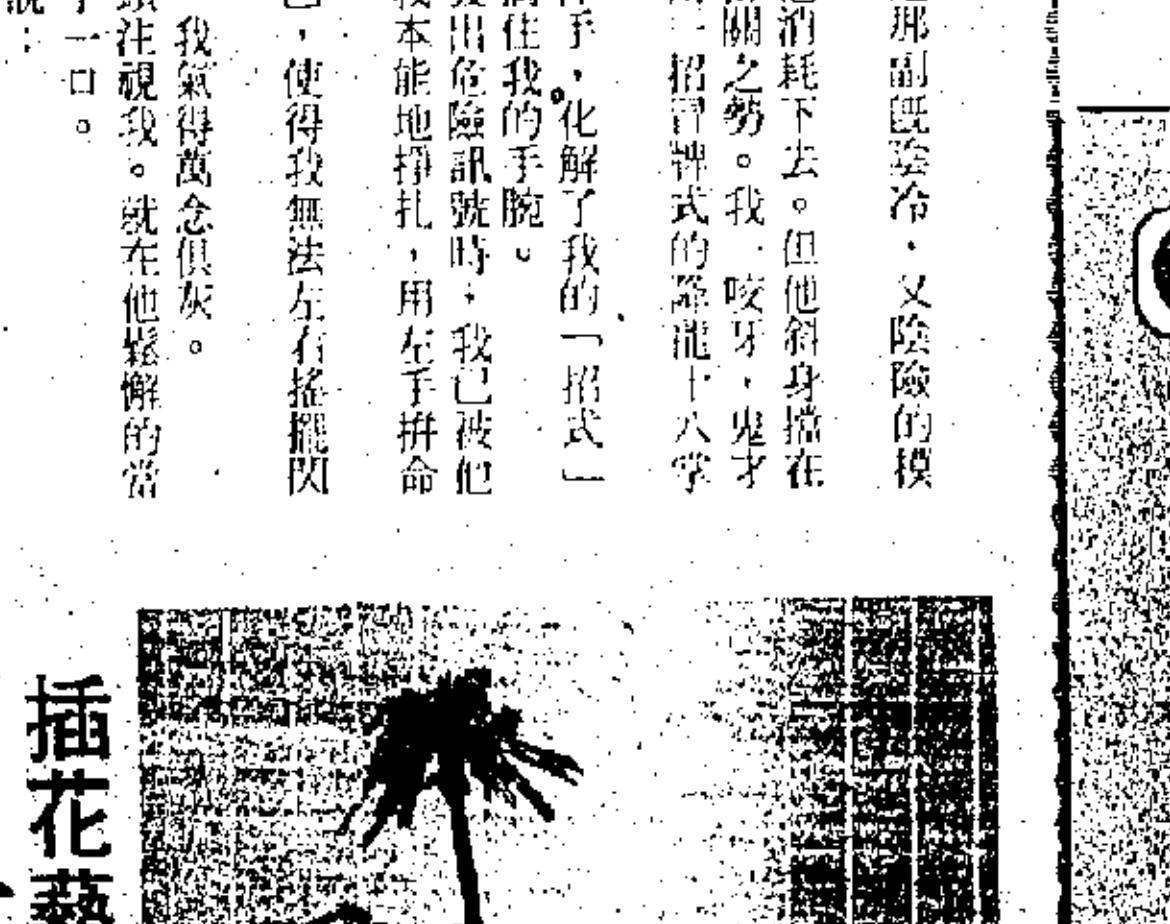 那副既陰冷，又陰險的模
消耗下去。但他斜身擋在
關之勢。我一咬牙，鬼才
一招冒牌式的降龍十八掌
手，化解了我的「招式」
住我的手腕。
出危險訊號時，我已被他
本能地掙扎，用左手拚命
，使得我無法左右搖擺閃
我氣得萬念俱灰。
注視我。就在他鬆懈的當
一口。
：
插花藝